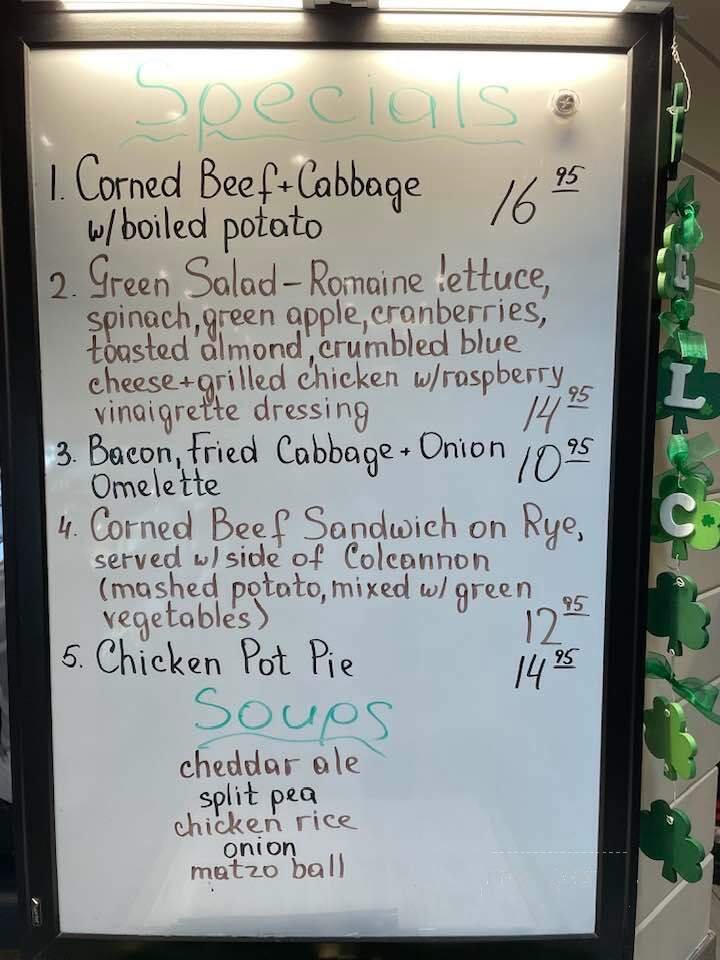 Specials
1. Corned Beef + Cabbage 16 95
w/boiled potato
2. Green Salad - Romaine lettuce,
spinach, green apple, cranberries,
toasted almond, crumbled blue
cheese + grilled chicken w/raspberry
vinaigrette dressing 14 95
3. Bacon, Fried Cabbage + Onion 10 95
Omelette
4. Corned Beef Sandwich on Rye,
served w/side of Colcannon
(mashed potato, mixed w/ green
vegetables) 12 95
5. Chicken Pot Pie 14 95
Soups
cheddar ale
split pea
chicken rice
onion
matzo ball
E
L
C